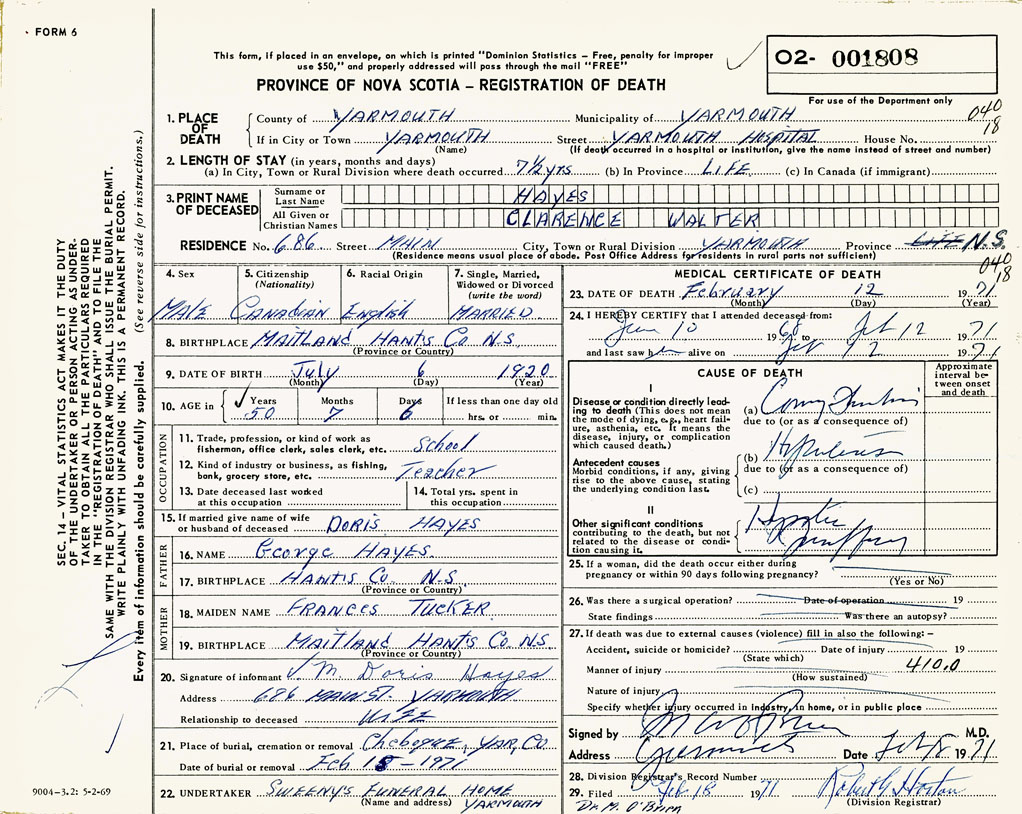 FORM 6
This form, if placed in an envelope, on which is printed "Dominion Statistics – Free, penalty for improper
use $50," and properly addressed will pass through the mail "FREE"
O2- 001808
PROVINCE OF NOVA SCOTIA – REGISTRATION OF DEATH
For use of the Department only
040
18
1. PLACE OF DEATH
County of YARMOUTH Municipality of YARMOUTH
If in City or Town YARMOUTH Street YARMOUTH HOSPITAL House No.
(Name) (If death occurred in a hospital or institution, give the name instead of street and number)
2. LENGTH OF STAY (in years, months and days)
(a) In City, Town or Rural Division where death occurred 7½ yrs (b) In Province LIFE (c) In Canada (if immigrant)
3. PRINT NAME OF DECEASED
Surname or Last Name HAYES
All Given or Christian Names CLARENCE WALTER
RESIDENCE No. 686 Street MAIN City, Town or Rural Division YARMOUTH Province N.S.
(Residence means usual place of abode. Post Office Address for residents in rural parts not sufficient)
040
18
SEC. 14 – VITAL STATISTICS ACT MAKES IT THE DUTY
OF THE UNDERTAKER OR PERSON ACTING AS UNDER-
TAKER TO OBTAIN ALL THE PARTICULARS REQUIRED
IN THE "REGISTRATION OF DEATH" AND TO FILE THE
SAME WITH THE DIVISION REGISTRAR WHO SHALL ISSUE THE BURIAL PERMIT.
WRITE PLAINLY WITH UNFADING INK. THIS IS A PERMANENT RECORD.
Every item of information should be carefully supplied. (See reverse side for instructions.)
4. Sex
Male
5. Citizenship
(Nationality)
Canadian
6. Racial Origin
English
7. Single, Married,
Widowed or Divorced
(write the word)
MARRIED
8. BIRTHPLACE MAITLAND HANTS Co N.S.
(Province or Country)
9. DATE OF BIRTH July 6 1920
(Month) (Day) (Year)
10. AGE in Years Months Days If less than one day old
50 7 6 hrs. or min.
OCCUPATION
11. Trade, profession, or kind of work as
fisherman, office clerk, sales clerk, etc. School
12. Kind of industry or business, as fishing,
bank, grocery store, etc. Teacher
13. Date deceased last worked
at this occupation
14. Total yrs. spent in
this occupation
15. If married give name of wife
or husband of deceased DORIS HAYES
FATHER
16. NAME George HAYES
17. BIRTHPLACE HANTS Co. N.S.
(Province or Country)
MOTHER
18. MAIDEN NAME FRANCES TUCKER
19. BIRTHPLACE MAITLAND HANTS Co. N.S.
(Province or Country)
20. Signature of informant M. Doris Hayes
Address 686 MAIN ST. YARMOUTH
Relationship to deceased WIFE
21. Place of burial, cremation or removal Chebogue, YAR, Co.
Date of burial or removal Feb 15 – 1971
22. UNDERTAKER SWEENY'S FUNERAL HOME
(Name and address) YARMOUTH
9004–3.2: 5-2-69
MEDICAL CERTIFICATE OF DEATH
23. DATE OF DEATH February 12 1971
(Month) (Day) (Year)
24. I HEREBY CERTIFY that I attended deceased from:
10 1968 to Feb 12 1971
and last saw him alive on Feb 12 1971
CAUSE OF DEATH
Approximate
interval be-
tween onset
and death
I
Disease or condition directly lead-
ing to death (This does not mean
the mode of dying, e.g., heart fail-
ure, asthenia, etc. It means the
disease, injury, or complication
which caused death.)
(a)
due to (or as a consequence of)
Antecedent causes
Morbid conditions, if any, giving
rise to the above cause, stating
the underlying condition last.
(b)
due to (or as a consequence of)
(c)
II
Other significant conditions
contributing to the death, but not
related to the disease or condi-
tion causing it.
25. If a woman, did the death occur either during
pregnancy or within 90 days following pregnancy?
(Yes or No)
26. Was there a surgical operation? Date of operation 19
State findings Was there an autopsy?
27. If death was due to external causes (violence) fill in also the following:–
Accident, suicide or homicide? Date of injury 19
(State which)
Manner of injury 410.0
(How sustained)
Nature of injury
Specify whether injury occurred in industry, in home, or in public place
Signed by M.D.
Address Date Feb 18 1971
28. Division Registrar's Record Number
29. Filed Feb 18 1971 Robert G Horton
(Division Registrar)
Dr. M. O'Brien